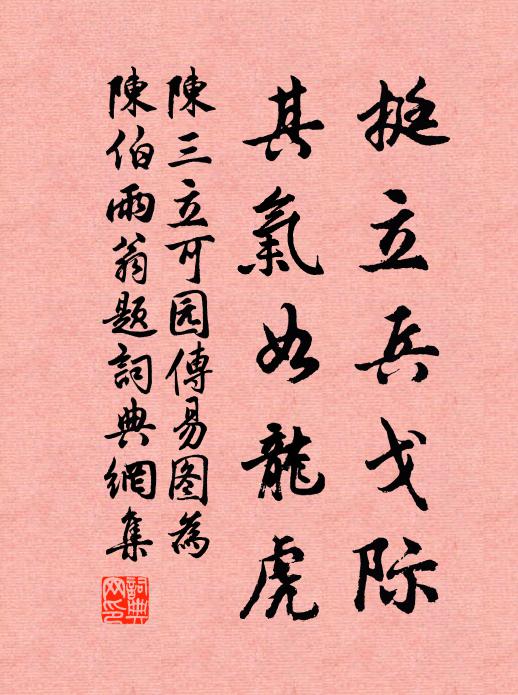 挺立兵戈际
其氣如龍虎
陳三立可园傳易图為
陳伯雨翁題詞典網集
詞典网印